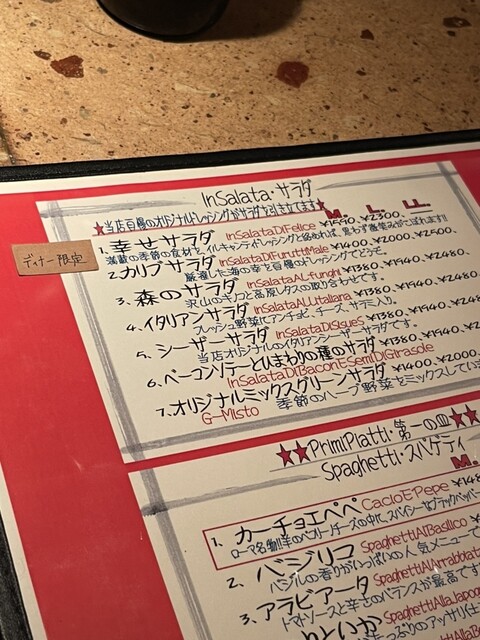 InSalata・サラダ
★当店自慢のオリジナルドレッシングがサラダを引き立てます★
M. L. LL.
ディナー限定
1. 幸せサラダ InSalataDiFelice ¥1590, ¥2300,
満載の季節の食材と、イルキャンティドレッシングと絡めれば、思わず微笑みがこぼれます!!
2. カリブサラダ InSalataDiFuruttiMale ¥1400, ¥2000, ¥2500,
厳選した海の幸を自慢のドレッシングでどうぞ。
3. 森のサラダ InSalataALfunghi ¥1380, ¥1940, ¥2480,
沢山のキノコと高原レタスの取り合わせです。
4. イタリアンサラダ InSalataALUtaliana ¥1380, ¥1940, ¥248
フレッシュ野菜にアンチョビ、チーズ、サラミ入り。
5. シーザーサラダ InSalataDiSues ¥1380, ¥1940, ¥248
当店オリジナルのイタリアンシーザーサラダです。
6. ベーコンソテーとひまわりの種のサラダ ¥1380, ¥1940, ¥2
InSalataDiBaconESemiDiGirasole
7. オリジナルミックスグリーンサラダ ¥1400, ¥2000,
G-Misto 季節のハーブ野菜をミックスしてい
★★PrimiPiatti・第一の皿★★
Spaghetti・スパゲティ
M.
1. カーチョエペペ CacioE'Pepe ¥148
ローマ名物!羊のペコリーノチーズの中に、スパイシーなブラックペッパー
2. バジリコ SpaghettiAlBasilico
バジルの香りがいっぱいの人気メニューで
3. アラビアータ SpaghettiAlArrabbiat
トマトソースと辛さのバランスが最高です
SpaghettiAllaJapog